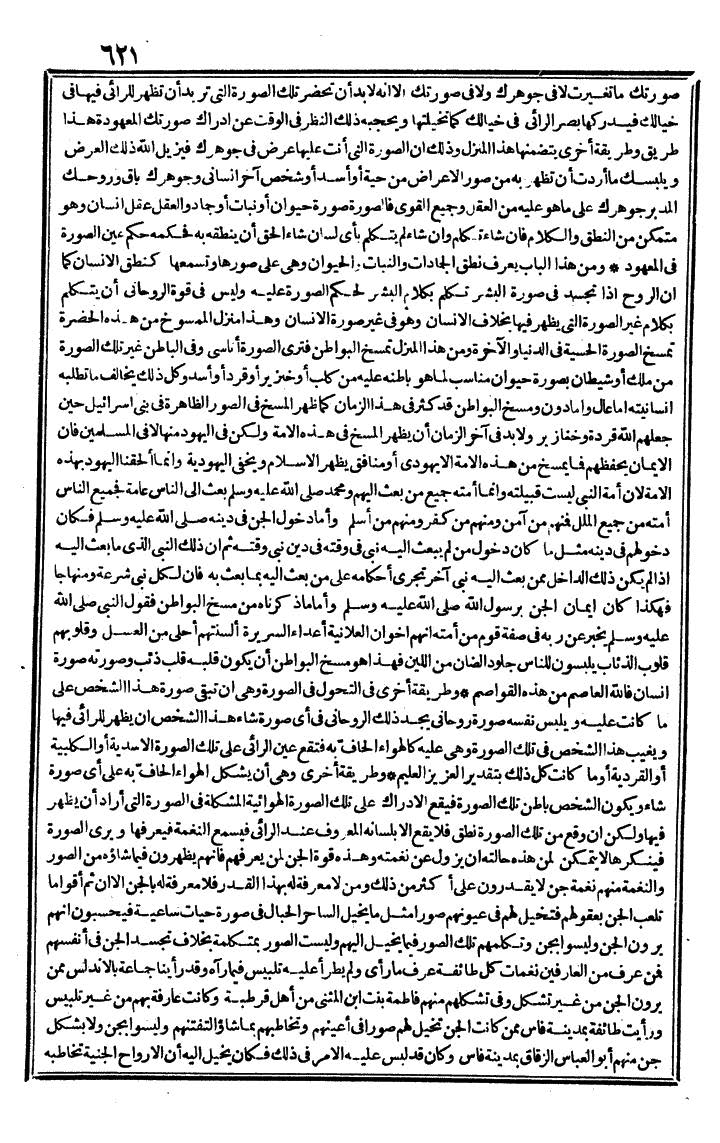 ٦٢١
صورتك ما تغيرت لا فى جوهرك ولا فى صورتك الا انه لابد أن تحضر تلك الصورة التى تريد أن تظهر للرائى فيها فى
خيالك فيدركها بصر الرائى فى خيالك كما تخيلتها ويحجبه ذلك النظر فى الوقت عن ادراك صورتك المعهودة هذا
طريق وطريقة أخرى يتضمنها هذا المنزل وذلك ان الصورة التى أنت عليها عرض فى جوهرك فيزيل الله ذلك العرض
ويلبسك ما أردت أن تظهر به من صور الاعراض من حية أو أسد أو شخص آخر انسانى وجوهرك باق وروحك
المدبر جوهرك على ما هو عليه من العقل وجميع القوى فالصورة صورة حيوان أو نبات أو جماد والعقل عقل انسان وهو
متمكن من النطق والكلام فان شاء تكلم وان شاء لم يتكلم بأى لسان شاء الحق أن ينطقه به فحكمه حكم عين الصورة
فى المعهود * ومن هذا الباب يعرف نطق الجمادات والنبات والحيوان وهى على صورها وتسمعها كنطق الانسان كما
ان الروح اذا تجسد فى صورة البشر تكلم بكلام البشر لحكم الصورة عليه وليس فى قوة الروحانى أن يتكلم
بكلام غير الصورة التى يظهر فيها بخلاف الانسان وهو فى غير صورة الانسان وهذا منزل الممسوخ من هذه الحضرة
تمسخ الصورة الحسية فى الدنيا والآخرة ومن هذا المنزل تمسخ البواطن فترى الصورة أناسى وفى الباطن غير تلك الصورة
من ملك أو شيطان بصورة حيوان مناسب لما هو باطنه عليه من كلب أو خنزير أو قرد أو أسد وكل ذلك يخالف ما تطلبه
انسانيته اما عال واما دون ومسخ البواطن قد كثر فى هذا الزمان كما ظهر المسخ فى الصور الظاهرة فى بنى اسرائيل حين
جعلهم الله قردة وخنازير ولابد فى آخر الزمان أن يظهر المسخ فى هذه الامة ولكن فى اليهود منها لا فى المسلمين فان
الايمان يحفظهم فما يمسخ من هذه الامة الا يهودى أو منافق يظهر الاسلام ويخفى اليهودية وانما ألحقنا اليهود بهذه
الامة لان أمة النبى ليست قبيلته وانما أمته جميع من بعث اليهم ومحمد صلى الله عليه وسلم بعث الى الناس عامة فجميع الناس
أمته من جميع الملل فمنهم من آمن ومنهم من كفر ومنهم من أسلم وأما دخول الجن فى دينه صلى الله عليه وسلم فكان
دخولهم فى دينه مثل ما كان دخول من لم يبعث اليه نبى فى وقته فى دين نبى وقته ثم ان ذلك النبى الذى ما بعث اليه
اذا لم يكن ذلك الداخل ممن بعث اليه نبى آخر تجرى أحكامه على من بعث اليه بما بعث به فان لكل نبى شرعة ومنهاجا
فهكذا كان ايمان الجن برسول الله صلى الله عليه وسلم وأما ما ذكرناه من مسخ البواطن فقول النبى صلى الله
عليه وسلم يخبر عن ربه فى صفة قوم من أمته انهم اخوان العلانية أعداء السريرة ألسنتهم أحلى من العسل وقلوبهم
قلوب الذئاب يلبسون للناس جلود الضان من اللين فهذا هو مسخ البواطن أن يكون قلبه قلب ذئب وصورته صورة
انسان فالله العاصم من هذه القواصم * وطريقة أخرى فى التحول فى الصورة وهى ان تبقى صورة هذا الشخص على
ما كانت عليه ويلبس نفسه صورة روحانى يجد ذلك الروحانى فى أى صورة شاء هذا الشخص ان يظهر للرائى فيها
ويغيب هذا الشخص فى تلك الصورة وهى عليه كالهواء الحاف به فتقع عين الرائى على تلك الصورة الاسدية أو الكلبية
أو القردية أو ما كانت كل ذلك بتقدير العزيز العليم * وطريقة أخرى وهى أن يشكل الهواء الحاف به على أى صورة
شاء ويكون الشخص باطن تلك الصورة فيقع الادراك على تلك الصورة الهوائية المشكلة فى الصورة التى أراد أن يظهر
فيها ولكن ان وقع من تلك الصورة نطق فلا يقع الا بلسانه المعروف عند الرائى فيسمع النغمة فيعرفها ويرى الصورة
فينكرها لا يتمكن لمن هذه حالته ان يزول عن نغمته وهذه قوة الجن لمن يعرفهم فانهم يظهرون فيما شاؤه من الصور
والنغمة منهم نغمة جن لا يقدرون على أكثر من ذلك ومن لا معرفة له بهذا القدر فلا معرفة له بالجن الا ان ثم أقواما
تلعب الجن بعقولهم فتخيل لهم فى عيونهم صورا مثل ما يخيل الساحر الحبال فى صورة حيات ساعية فيحسبون انهم
يرون الجن وليسوا بجن وتكلمهم تلك الصور فيما يخيل اليهم وليست الصور بمتكلمة بخلاف تجسد الجن فى أنفسهم
فمن عرف من العارفين نغمات كل طائفة عرف ما رأى ولم يطرأ عليه تلبيس فيما رآه وقد رأينا جماعة بالاندلس ممن
يرون الجن من غير تشكل وفى تشكلهم منهم فاطمة بنت ابن المثنى من أهل قرطبة وكانت عارفة بهم من غير تلبيس
ورأيت طائفة بمدينة فاس ممن كانت الجن تتخيل لهم صورا فى أعينهم وتخاطبهم بما شاؤا لتفتنهم وليسوا بجن ولا بشكل
جن منهم أبو العباس الزقاق بمدينة فاس وكان قد لبس عليه الامر فى ذلك فكان يخيل اليه أن الارواح الجنية تخاطبه